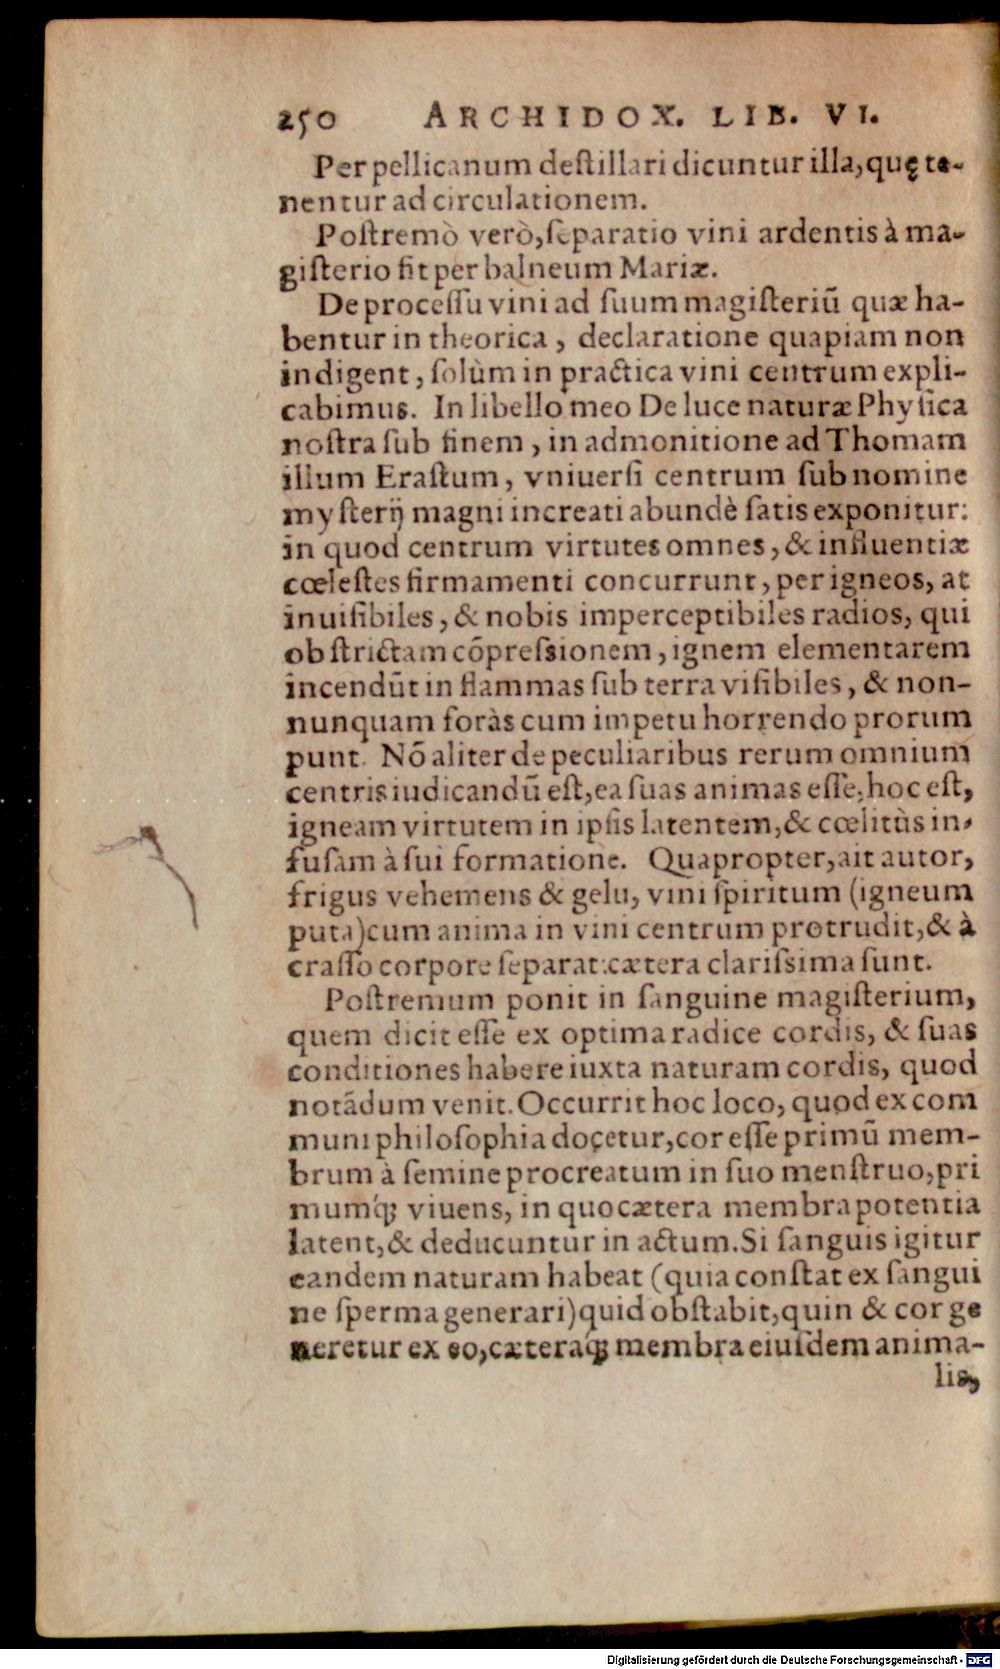 250 ARCHIDOX. LIB. VI.
Per pellicanum destillari dicuntur illa, quę te-
nentur ad circulationem.
Postremò verò, separatio vini ardentis à ma-
gisterio fit per balneum Mariæ.
De processu vini ad suum magisteriū quæ ha-
bentur in theorica, declaratione quapiam non
indigent, solùm in practica vini centrum expli-
cabimus. In libello meo De luce naturæ Physica
nostra sub finem, in admonitione ad Thomam
illum Erastum, vniuersi centrum sub nomine
mysterij magni increati abundè satis exponitur:
in quod centrum virtutes omnes, & influentiæ
cœlestes firmamenti concurrunt, per igneos, at
inuisibiles, & nobis imperceptibiles radios, qui
ob strictam cōpressionem, ignem elementarem
incendūt in flammas sub terra visibiles, & non-
nunquam foràs cum impetu horrendo prorum
punt. Nō aliter de peculiaribus rerum omnium
centris iudicandū est, ea suas animas esse, hoc est,
igneam virtutem in ipsis latentem, & cœlitùs in-
fusam à sui formatione. Quapropter, ait autor,
frigus vehemens & gelu, vini spiritum (igneum
puta) cum anima in vini centrum protrudit, & à
crasso corpore separat: cætera clarissima sunt.
Postremum ponit in sanguine magisterium,
quem dicit esse ex optima radice cordis, & suas
conditiones habere iuxta naturam cordis, quod
notādum venit. Occurrit hoc loco, quod ex com
muni philosophia docetur, cor esse primū mem-
brum à semine procreatum in suo menstruo, pri
mumq́; viuens, in quo cætera membra potentia
latent, & deducuntur in actum. Si sanguis igitur
eandem naturam habeat (quia constat ex sangui
ne sperma generari) quid obstabit, quin & cor ge
neretur ex eo, cæteraq́; membra eiusdem anima-
lis,
Digitalisierung gefördert durch die Deutsche Forschungsgemeinschaft - DFG